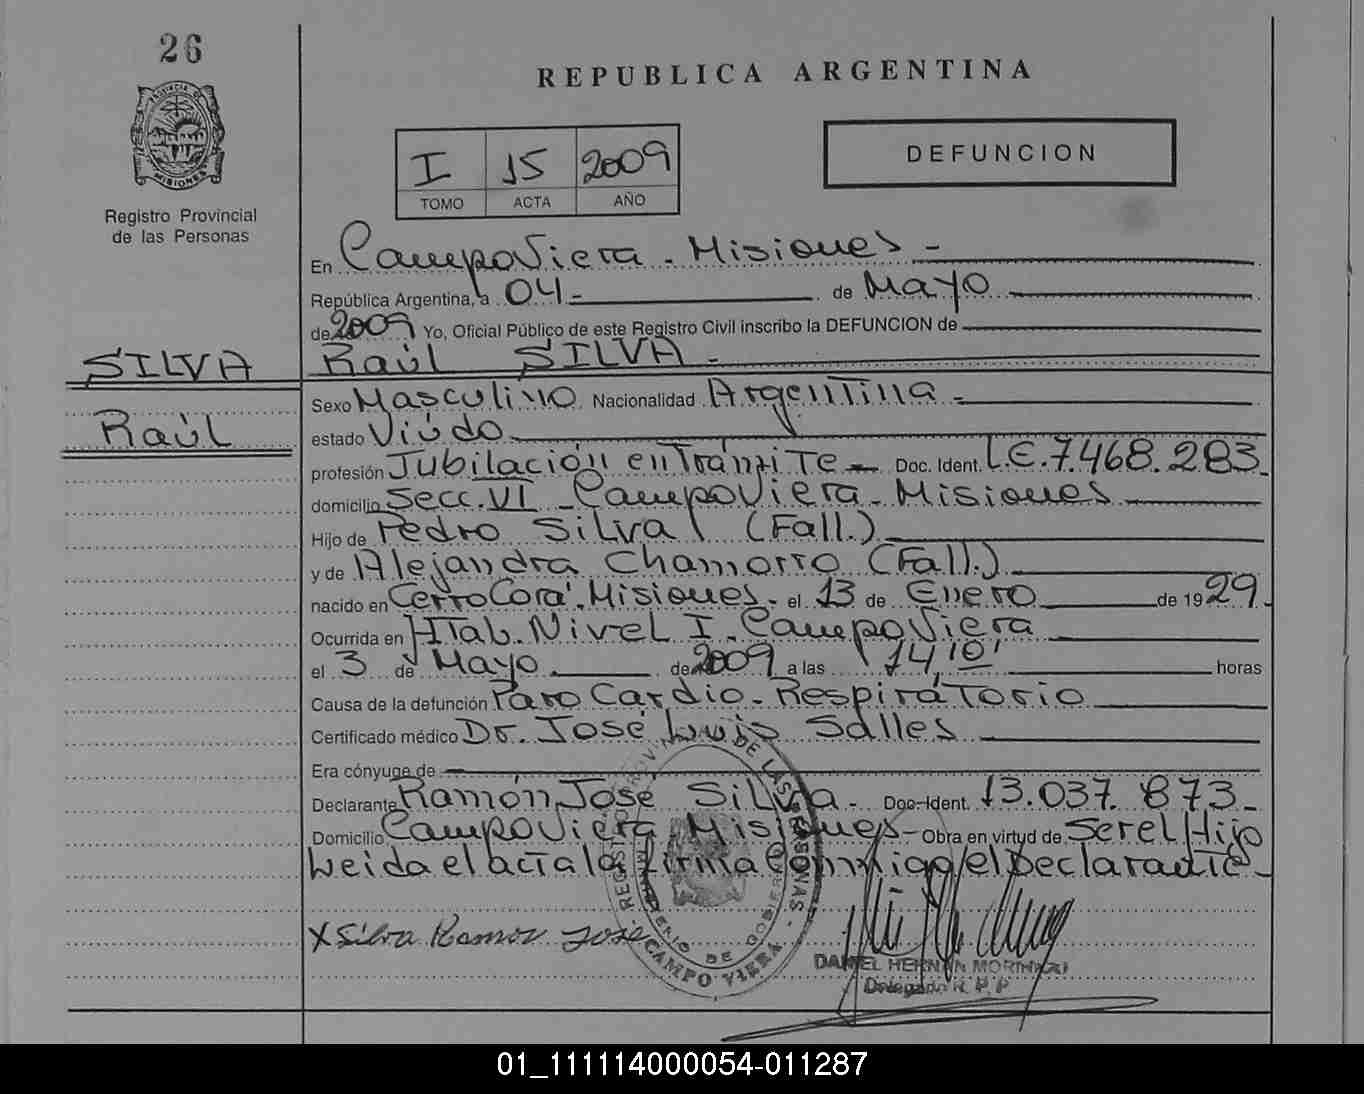 26
REPUBLICA ARGENTINA
I 15 2009
TOMO ACTA AÑO
DEFUNCION
PROVINCIA DE
MISIONES
Registro Provincial
de las Personas
En Campo Viera - Misiones -
República Argentina, a 04 - de Mayo
de 2009 Yo, Oficial Público de este Registro Civil inscribo la DEFUNCION de
SILVA Raúl SILVA -
Raúl
Sexo Masculino Nacionalidad Argentina -
estado Viúdo
profesión Jubilación en Tránsite - Doc. Ident. L.E. 7.468.283 -
domicilio Secc. VI - Campo Viera - Misiones
Hijo de Pedro Silva (Fall.)
y de Alejandra Chamorro (Fall.)
nacido en Cerro Corá - Misiones - el 13 de Enero de 1929.
Ocurrida en Htal. Nivel I - Campo Viera
el 3 de Mayo de 2009 a las 14,10' horas
Causa de la defunción Paro Cardio - Respirátorio
Certificado médico Dr. José Luis Salles
Era cónyuge de
Declarante Ramón José Silva - Doc. Ident. 13.037.873 -
Domicilio Campo Viera - Misiones - Obra en virtud de Ser el Hijo
Leida el acta la firma Conmigo el Declarante -
X Silva Ramon Jose
REGISTRO PROVINCIAL DE LAS PERSONAS
MINISTERIO DE GOBIERNO
CAMPO VIERA
DANIEL HERNAN
Delegado R. P. P.
01_111114000054-011287